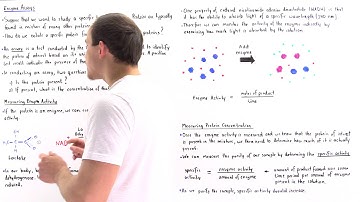 Enzyme Assays
• Suppose that we want to study a specific
found in mixture of many other proteins
• How do we isolate a specific protein
• An assay is a test conducted by the
the protein of interest based on its
and will indicate the presence of the
• In conducting an assay, two questions
1) Is the protein present?
2) If present, what is the concentration of that
Measuring Enzyme Activity
• If the protein is an enzyme, we can
activity.
Lactate
NAD
• In our body,
dehydrogenase
reduced.
• One property of reduced nicotinamide adenine dinucleotide (NADH) is that
it has the ability to absorb light of a specific wavelength (340 nm)
• Therefore we can monitor the activity of the enzyme indirectly by
examining how much light is absorbed by the solution
Add
enzyme
Enzyme Activity = moles of product
time
Measuring Protein Concentration
• Once the enzyme activity is measured and we know that the protein of interest
is present in the mixture, we then need to determine how much of it is actually
present.
• We can measure the purity of our sample by determining the specific activity.
specific
activity = enzyme activity
amount of enzyme = amount of product formed over some
time period per amount of enzyme
present in the solution.
• As we purify the sample, specific activity should increase.